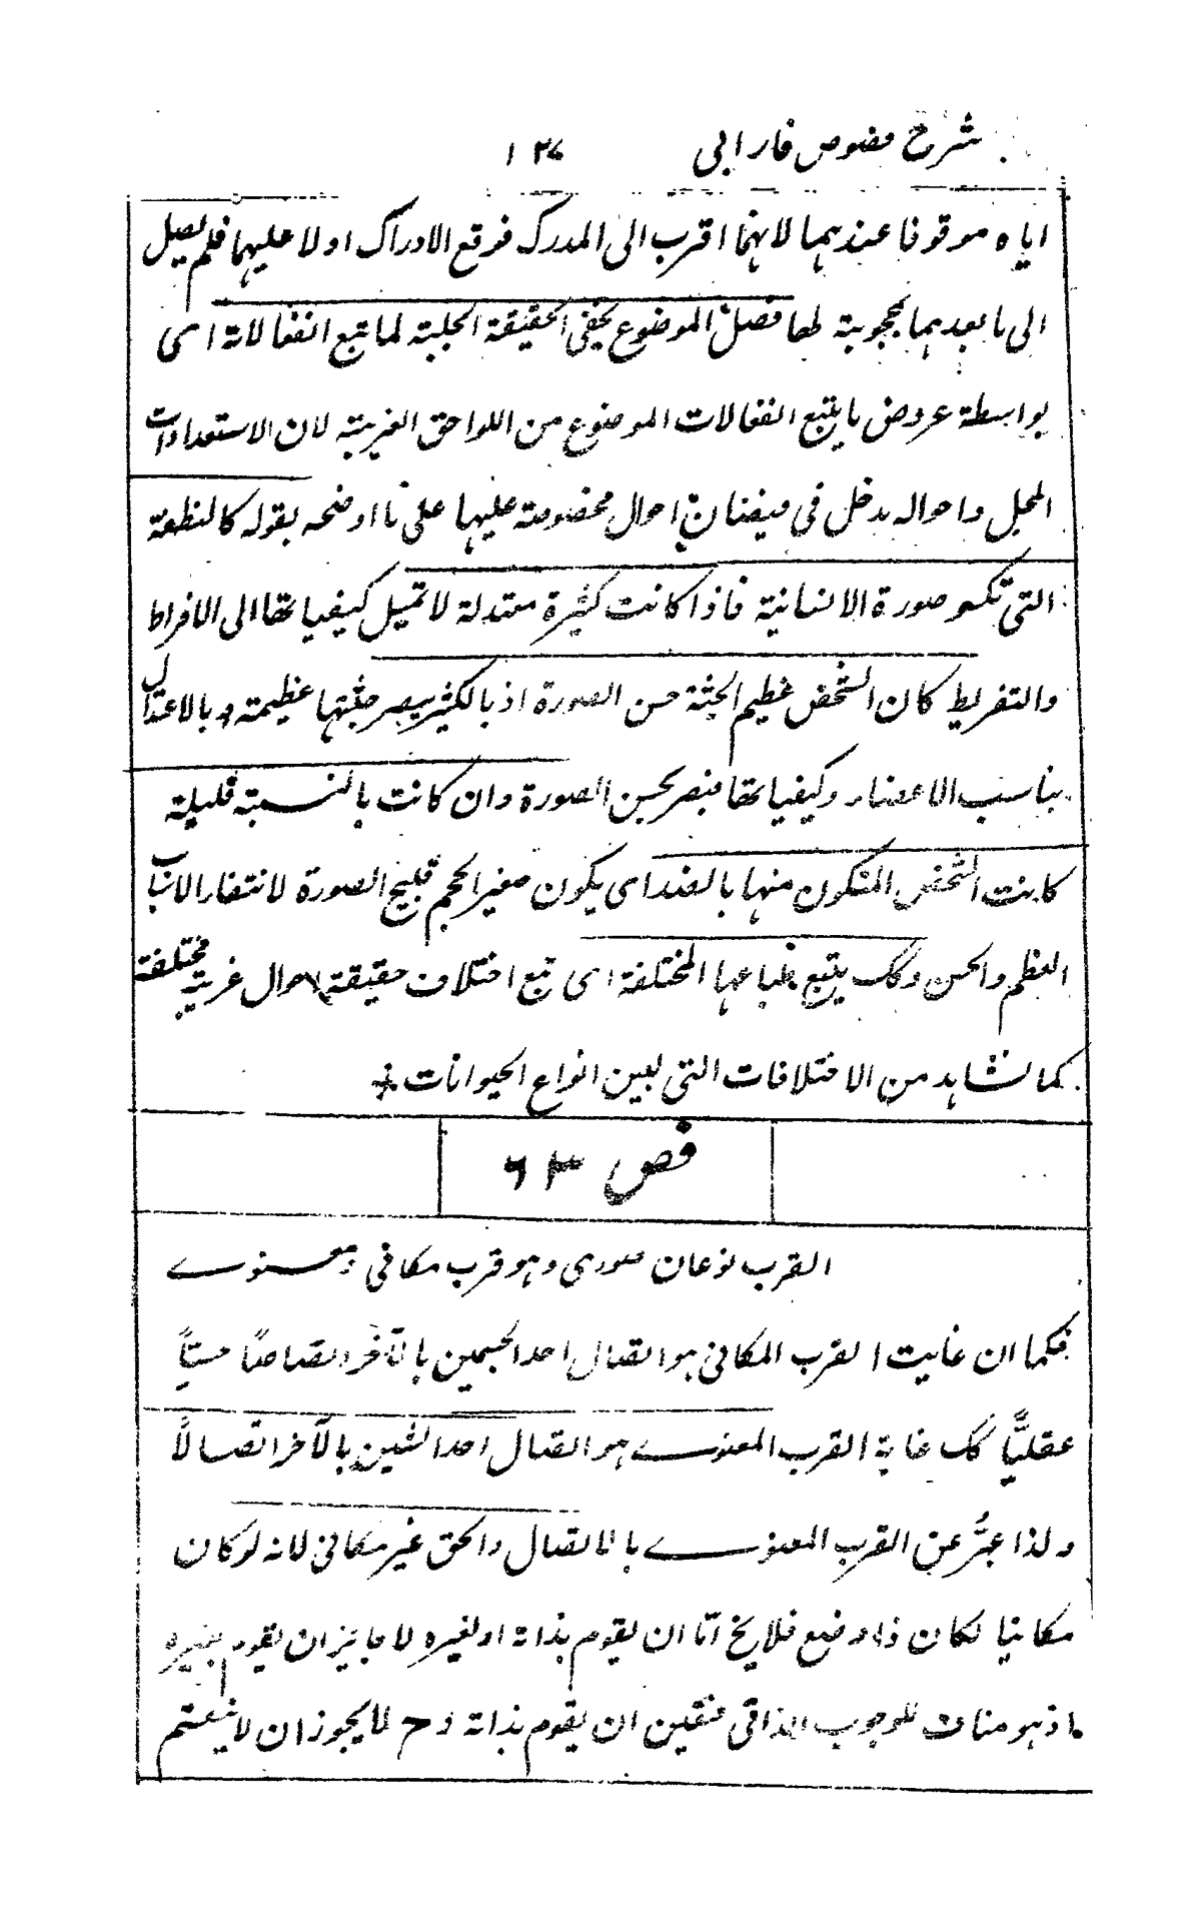 شرح فصوص فارابی ۱۳۷
ایاه موقوفا عندهما لانهما اقرب الی المدرک فوقع الادراک اولا علیهما فلم یصل
الی ما بعدهما محجوبة لها فصل الموضوع یخفی الحقیقة الجلیة لما تتبع انفعالاته ای
بواسطة عروض ما یتبع انفعالات الموضوع من اللواحق الغریبة لان الاستعدادات
المحل واحواله یدخل فی فیضان احوال مخصوصة علیها علی ما اوضحه بقوله کالنطفة
التی تکسو صورة الانسانیة فاذا کانت کثیرة معتدلة لا تمیل کیفیاتها الی الافراط
والتفریط کان الشخص عظیم الجثة حسن الصورة اذ بالکثیر یصیر جثتها عظیمة و بالاعتدال
یناسب الاعضاء وکیفیاتها فیصیر حسن الصورة وان کانت بالنسبة قلیلة
کانت الشخص المتکون منها بالضد ای یکون صغیر الحجم قبیح الصورة لانتفاء الاسباب
العظم والحسن وکک یتبع طباعها المختلفة ای تبع اختلاف حقیقة احوال غریبة مختلفة
کما نشاهد من الاختلافات التی بین انواع الحیوانات
فص ۶۳
القرب نوعان صوری وهو قرب مکانی و معنوے
فکما ان غایت القرب المکانی هو اتصال احد الجسمین بالآخر اتصالا حسیًا
عقلیًّا کک غایة القرب المعنوے هو اتصال احد الشیئین بالآخر اتصالاً
ولذا عبّر عن القرب المعنوے بالاتصال والحق غیر مکانی لانه لو کان
مکانیا لکان ذا وضع فلا یخ امّا ان یقوم بذاته او لغیره لا جایز ان یقوم بغیره
اذ هو مناف للوجوب الذاتی فتعین ان یقوم بذاته وح لا یجوز ان لا ینقسم